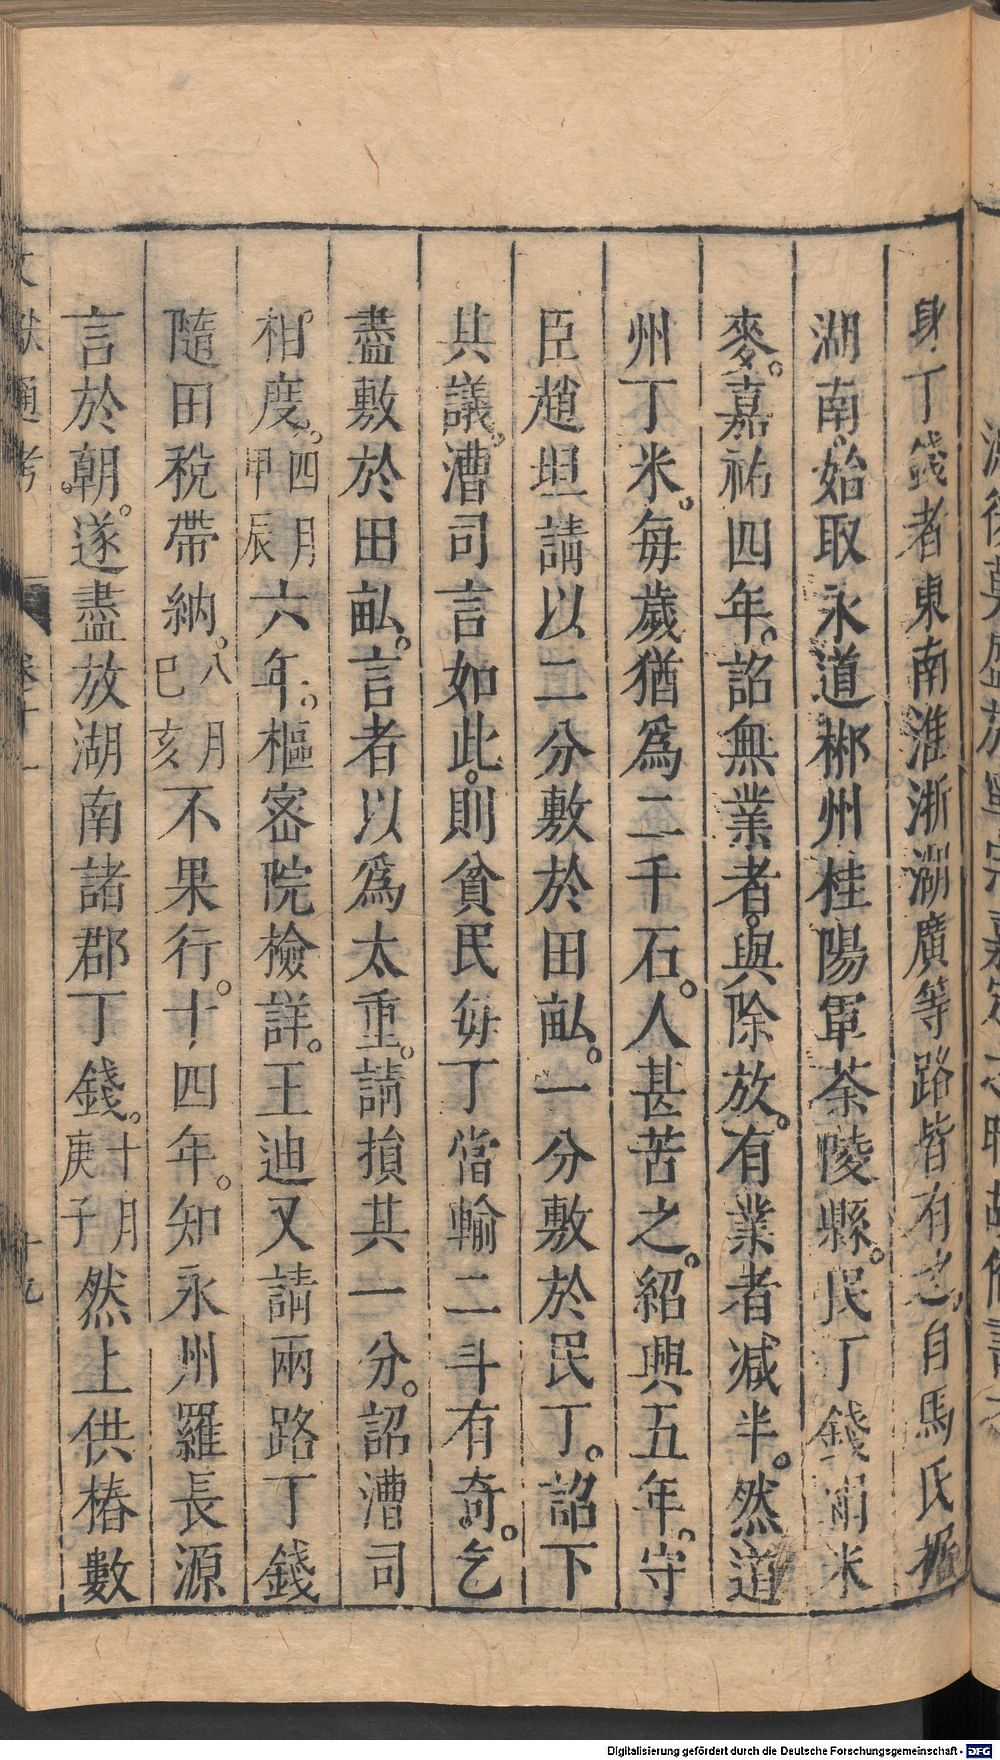 身丁錢者東南淮浙湖廣等路皆有之自馬氏據
湖南始取永道郴州桂陽軍茶陵縣民丁錢絹米
麥嘉祐四年詔無業者與除放有業者減半然道
州丁米每歲猶爲二千石人甚苦之紹興五年守
臣趙坦請以二分敷於田畝一分敷於民丁詔下
其議漕司言如此則貧民每丁當輸二斗有奇乞
盡敷於田畝言者以爲太重請損其一分詔漕司
相度四月甲辰六年樞密院檢詳王迪又請兩路丁錢
隨田稅帶納八月己亥不果行十四年知永州羅長源
言於朝遂盡放湖南諸郡丁錢十月庚子然上供樁數
文獻通考 卷十一 十九
Digitalisierung gefördert durch die Deutsche Forschungsgemeinschaft - DFG